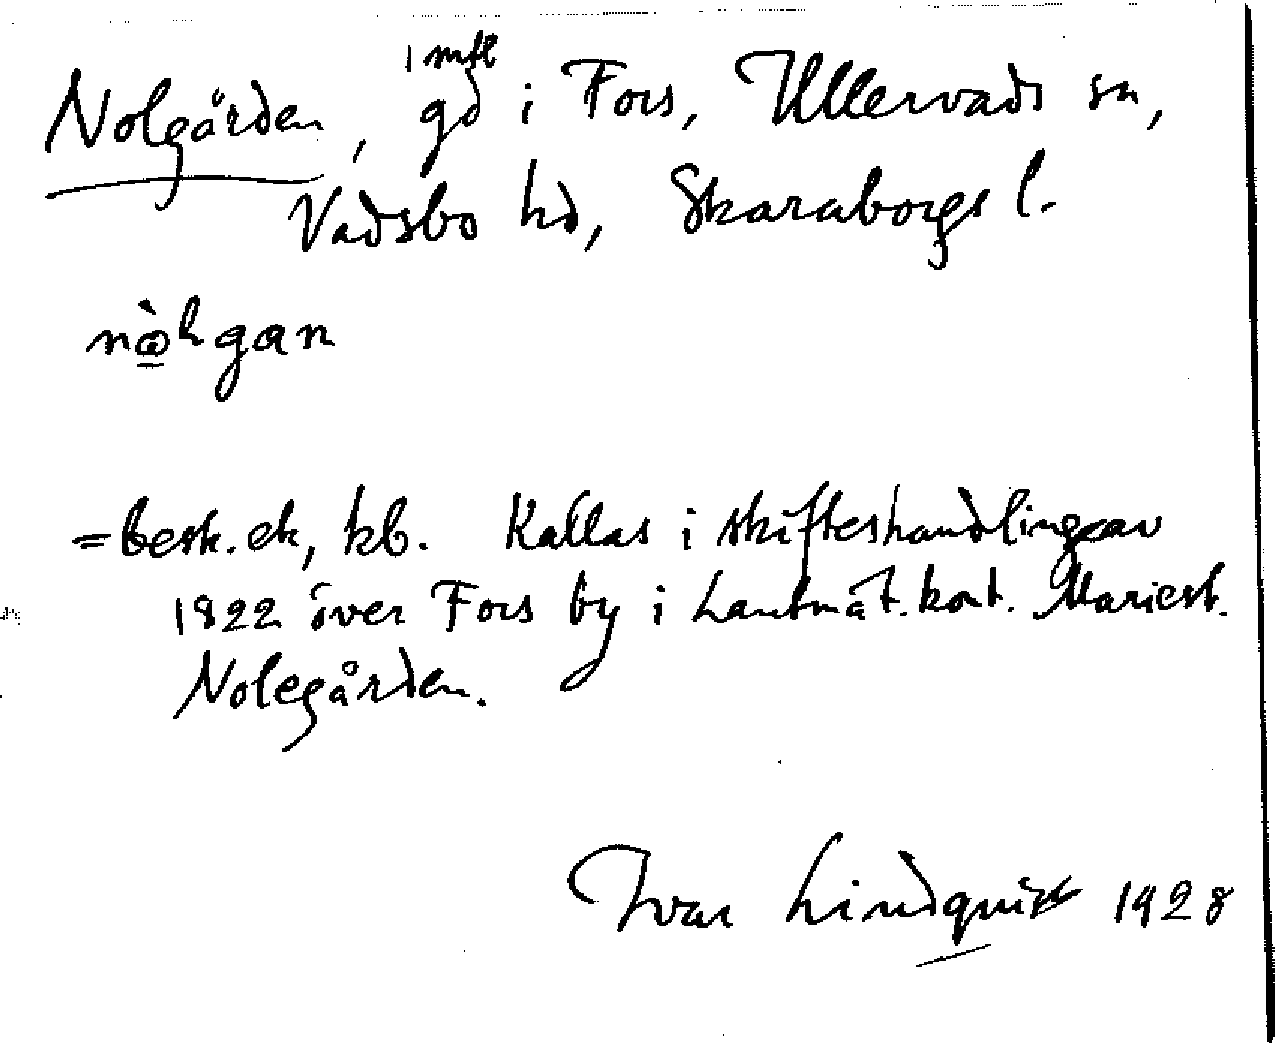 Nolgården, 1 mtl gd i Fors, Ullervads sn,
Vadsbo hd, Skaraborgs l.
= besk. ek, kb. Kallas i skifteshandlingar
1822 över Fors by i Lantmät. kont. Mariest.
Nolegården.
Ivar Lindquist 1928